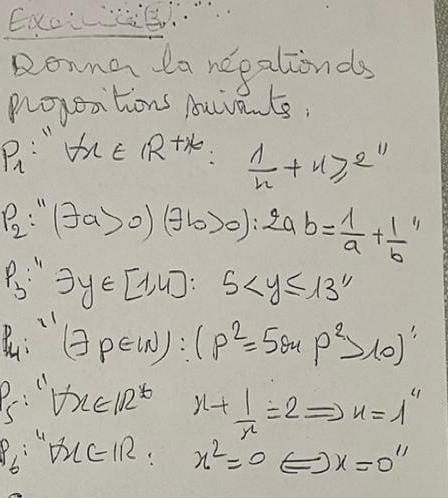 Exercice 3.
Donner la négation des
propositions suivants.
P₁: "∀x ∈ ℝ⁺*: 1/x + x ⩾ 2"
P₂: "(∃a>0) (∃b>0): 2ab = 1/a + 1/b"
P₃: "∃y ∈ [1,4]: 5<y≤13"
P₄: "(∃p∈ℕ): (p²=5 ou p²>10)"
P₅: "∀x∈ℝ* x + 1/x = 2 ⟹ x = 1"
P₆: "∀x∈ℝ: x²=0 ⟺ x=0"